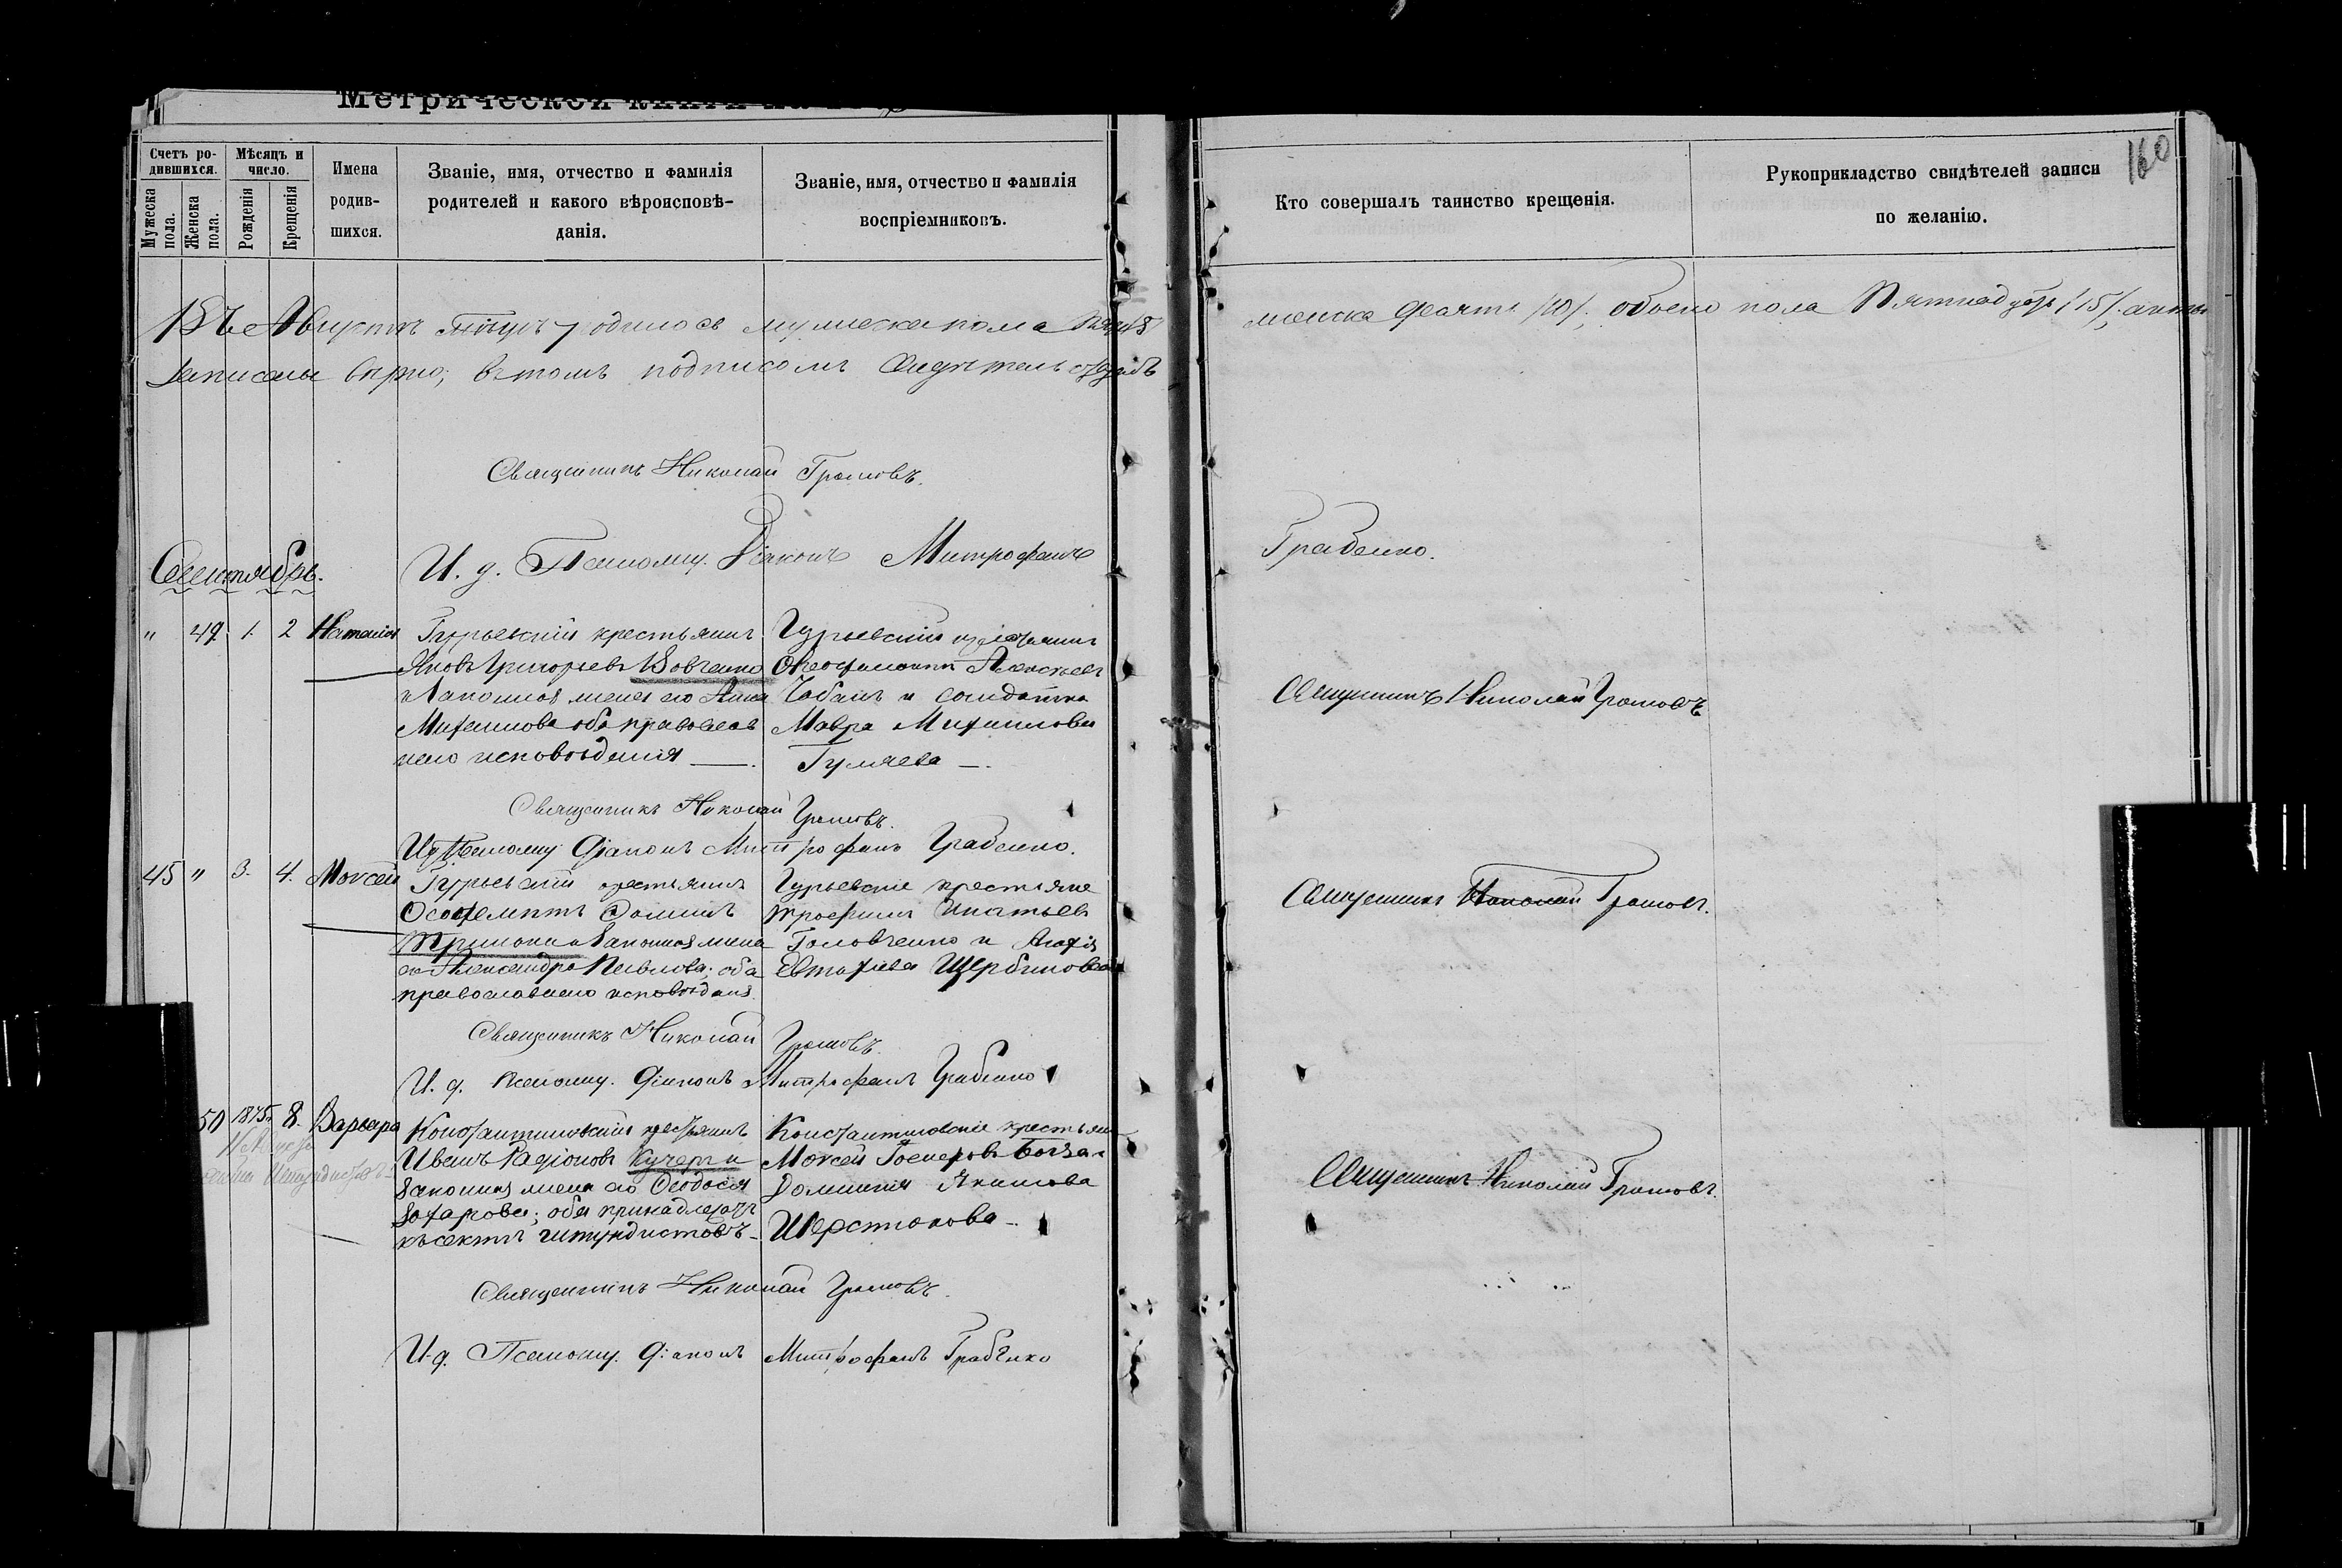 Метрической книги на
160
Счетъ ро-
дившихся.
Мужеска пола.
Женска пола.
Мѣсяцъ и
число.
Рожденія
Крещенія
Имена
родив-
шихся.
Званіе, имя, отчество и фамилія
родителей и какого вѣроисповѣ-
данія.
Званіе, имя, отчество и фамилія
воспріемниковъ.
Кто совершалъ таинство крещенія.
Рукоприкладство свидѣтелей записи
по желанію.
Въ Августѣ родилось мужеска пола женска десять /10/, обоего пола пятнадцать /15/; акты
записаны вѣрно; въ томъ подписомъ
Священникъ Николай Громовъ.
И. д. Псаломщ. Діаконъ Митрофанъ Грабенко.
Сентябрь.
" 49 1. 2 Наталія
Гурьевскій крестьянинъ
Яковъ Григорьевъ Вовченко
и законная жена его Анна
Михаилова оба православ
наго исповѣданія —.
Гурьевскій
Алексѣевъ
Чабанъ и солдатка
Мавра Михаилова
Гуляева —.
Священникъ Николай Громовъ
Священникъ Николай Громовъ.
И д Псаломщ Діаконъ Митрофанъ Грабенко.
45 " 3. 4. Моѵсей
Гурьевскій крестьянинъ
и законная жена
его Александра Павлова; оба
православнаго исповѣданія.
Гурьевскіе крестьяне
Трофимъ Игнатьевъ
Головченко и Агафія
Евтафіева Щербинова
Священникъ Николай Громовъ.
Священникъ Николай Громовъ.
И. д. Псаломщ. Діаконъ Митрофанъ Грабенко
50 1875. 8. Варвара
Константиновскій крестьянинъ
Иванъ Радіоновъ Кучеръ и
законная жена его Ѳеодосія
Захарова; оба принадлежатъ
къ сектѣ штундистовъ –
Константиновскіе крестьяне
Моѵсей
Домникія Якимова
Шерстюкова –.
Священникъ Николай Громовъ.
Священникъ Николай Громовъ.
И. д. Псаломщ. Діаконъ Митрофанъ Грабенко